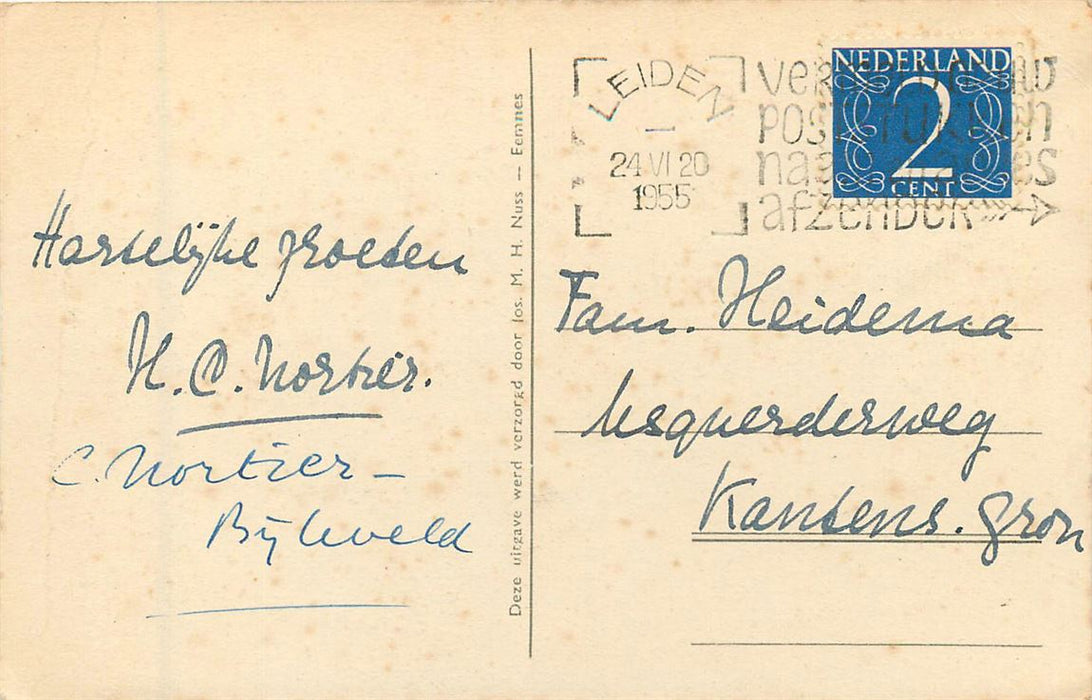 Hartelijke groeten
H. C. Nortier.
C. Nortier –
Bijleveld
Deze uitgave werd verzorgd door Jos. M. H. Nuss — Eemnes
LEIDEN
24 VI 20
1955
afzender
NEDERLAND
2
CENT
Fam. Heidema
Usquerderweg
Kantens. Gron